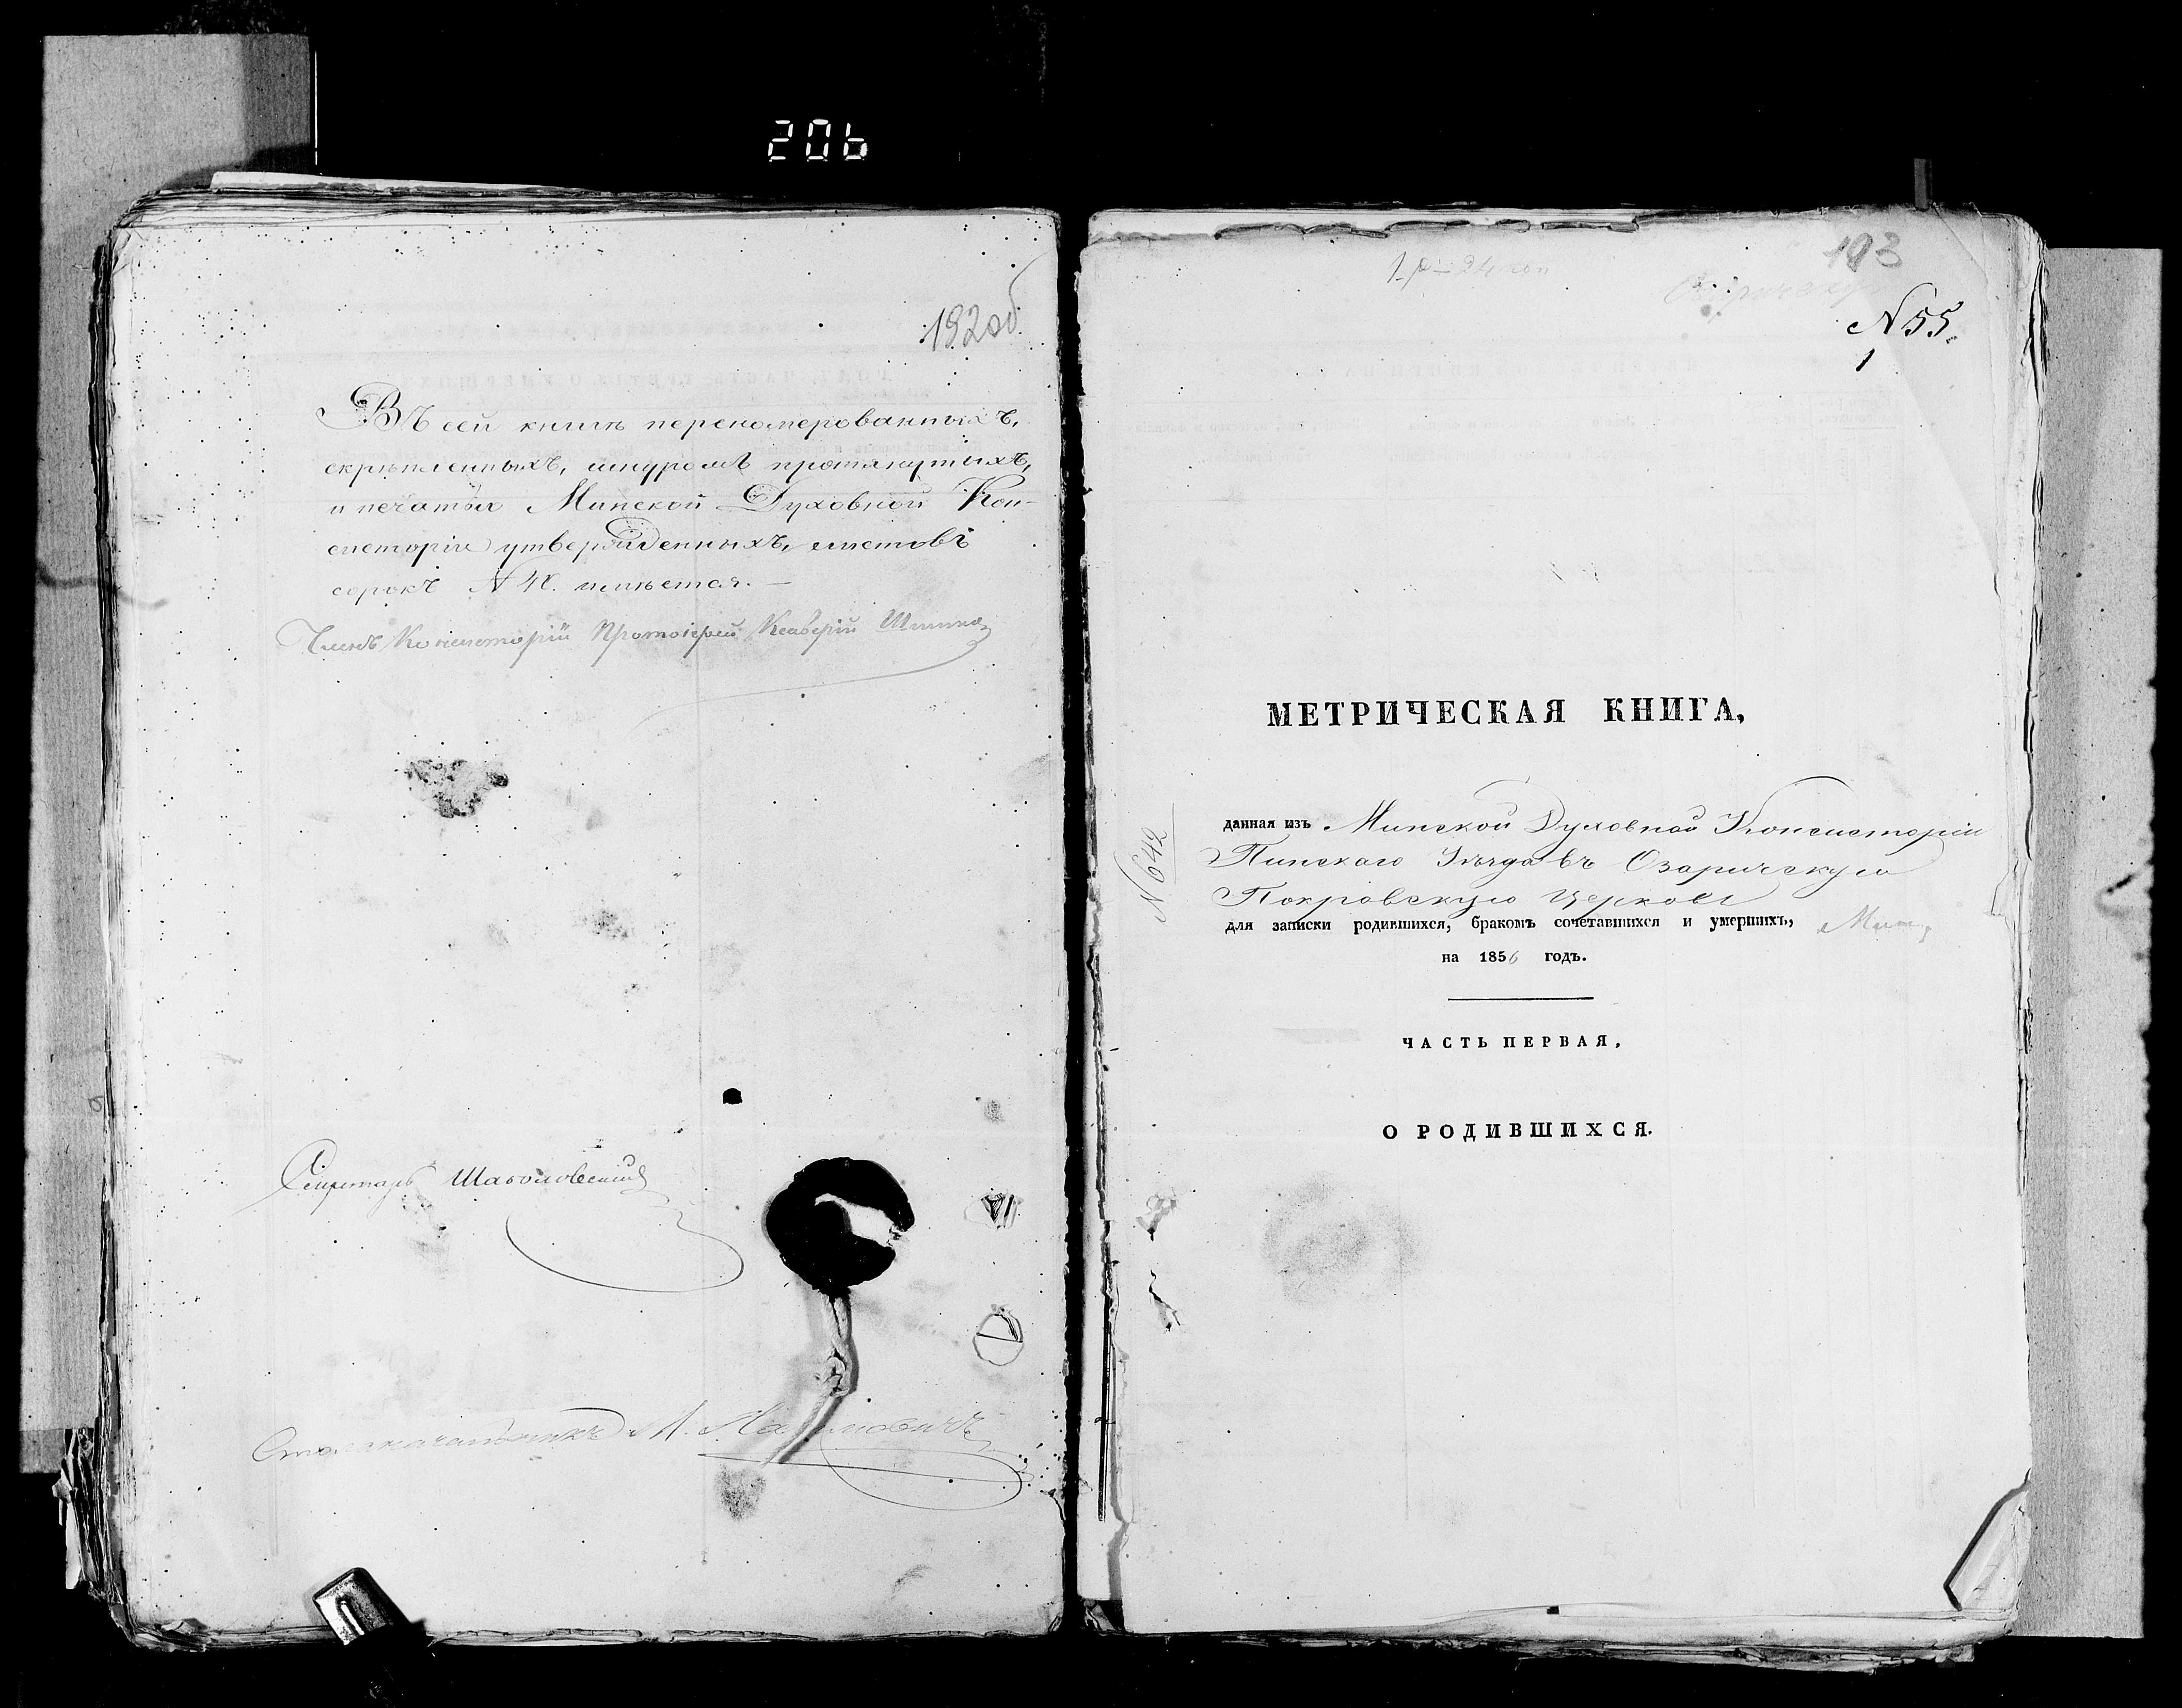 206
192 об
Въ сей книгѣ перенумерованныхъ,
скрѣпленныхъ, шнуромъ протянутыхъ,
и печатью Минской Духовной Кон-
систоріи утвержденныхъ, листовъ
сорокъ N 40. имѣется. —
Членъ Консисторіи Протоіерей
Секретарь
Столоначальникъ
193
N 55.
1
МЕТРИЧЕСКАЯ КНИГА,
данная изъ Минской Духовной Консисторіи
Пинскаго Уѣзда въ Озаричскую
Покровскую церковь
для записки родившихся, бракомъ сочетавшихся и умершихъ,
на 1856 годъ.
N 642
ЧАСТЬ ПЕРВАЯ,
О РОДИВШИХСЯ.